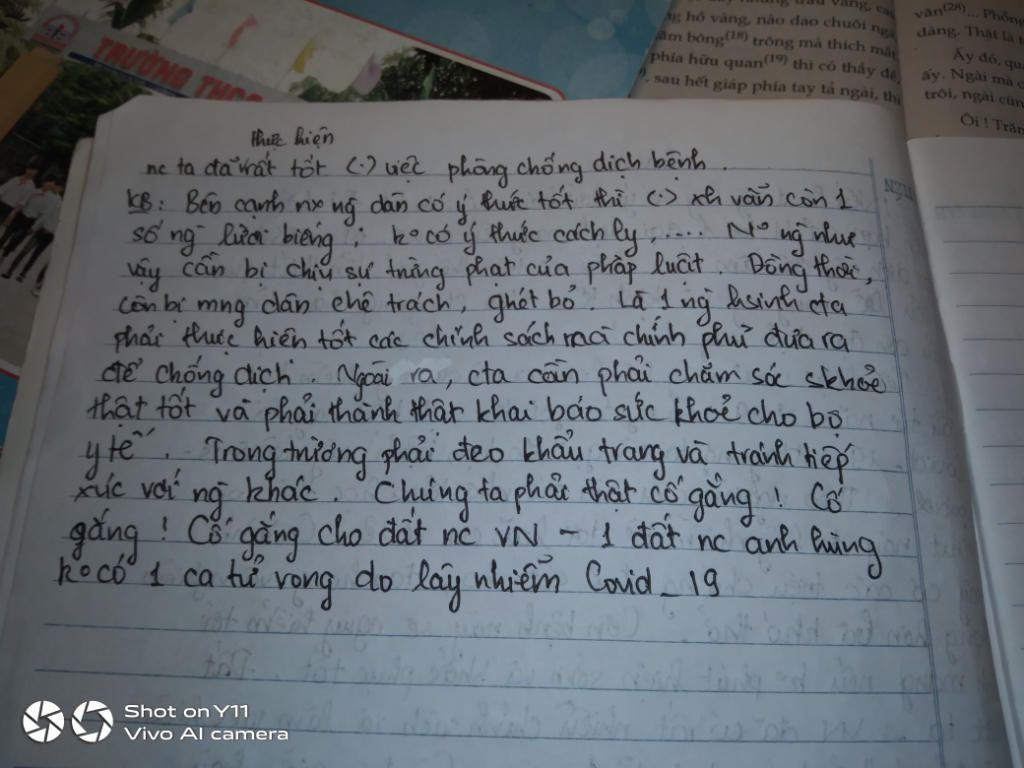 TRƯỜNG THCS
g hồ vàng, nào dao chuôi ngà
ăm bông(18) trông mà thích mắt
phía hữu quan(19) thì có thầy đề,
sau hết giáp phía tay tả ngài, thì
văn(28)... Phỗng
dàng. Thật là t
Ấy đó, qua
ấy. Ngài mà c
trôi, ngài cũn
Ôi ! Trăm
thực hiện
nc ta đã rất tốt (.) việc phòng chống dịch bệnh.
KB: Bên cạnh nx ng dân có ý thức tốt thì (.) xh vẫn còn 1
số ng lười biếng; ko có ý thức cách ly, .... No ng như
vậy cần bị chịu sự trừng phạt của pháp luật. Đồng thời,
còn bị mng dân chê trách, ghét bỏ. Là 1 ng hsinh cta
phải thực hiện tốt các chính sách mà chính phủ đưa ra
để chống dịch. Ngoài ra, cta cần phải chăm sóc skhoẻ
thật tốt và phải thành thật khai báo sức khoẻ cho bộ
y tế. Trong trường phải đeo khẩu trang và tránh tiếp
xúc với ng khác. Chúng ta phải thật cố gắng! Cố
gắng! Cố gắng cho đất nc VN - 1 đất nc anh hùng
ko có 1 ca tử vong do lây nhiễm Covid_19
Shot on Y11
Vivo AI camera